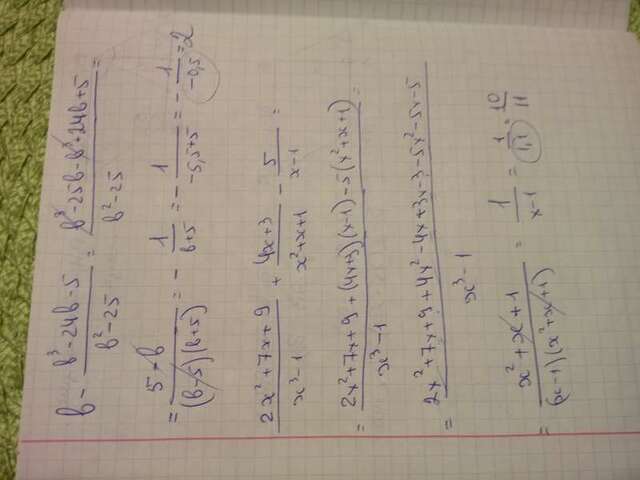 b - (b³-24b-5)/(b²-25) = (b³-25b-b³+24b+5)/(b²-25) =
= (5-b)/((b-5)(b+5)) = - 1/(b+5) = - 1/(-5,5+5) = - 1/(-0,5) = 2
(2x²+7x+9)/(x³-1) + (4x+3)/(x²+x+1) - 5/(x-1) =
= (2x²+7x+9+(4x+3)(x-1)-5(x²+x+1))/(x³-1) =
= (2x²+7x+9+4x²-4x+3x-3-5x²-5x-5)/(x³-1)
= (x²+x+1)/((x-1)(x²+x+1)) = 1/(x-1) = 1/1,1 = 10/11